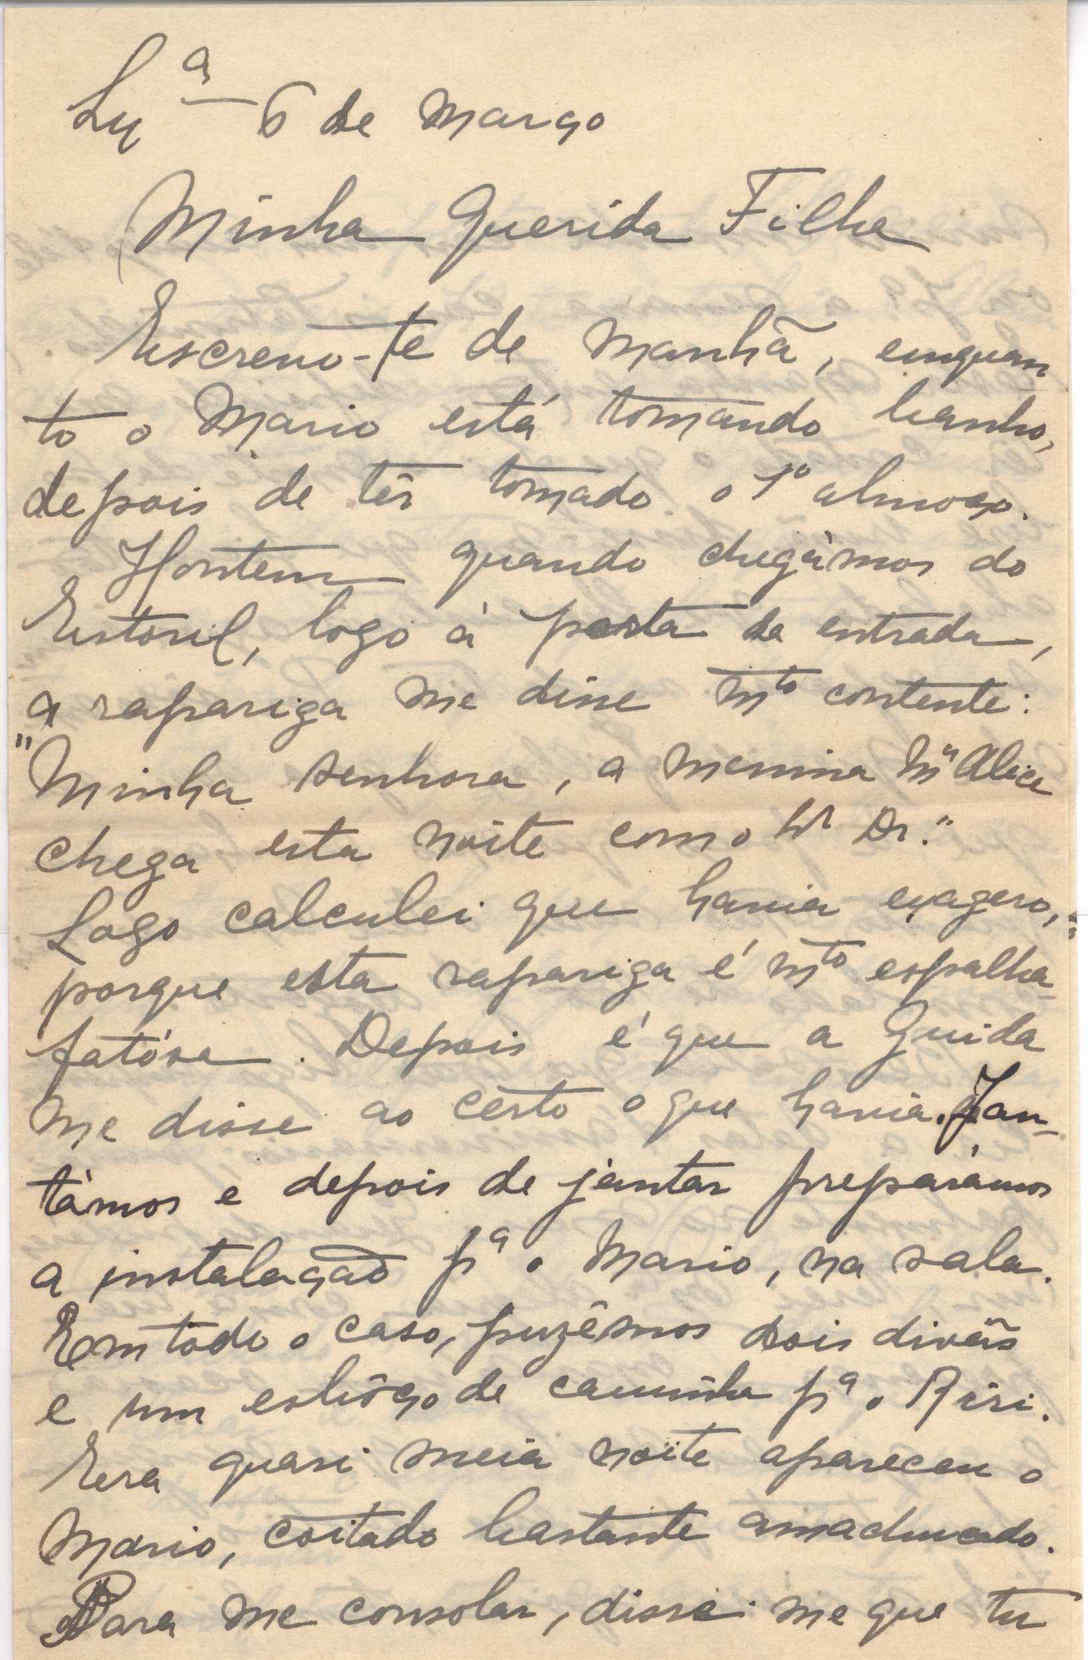 Lxª 6 de Março
Minha Querida Filha
Escrevo-te de manhã, emquan
to o Mario está tomando banho,
depois de têr tomado o 1º almoço.
Hontem quando chegámos do
Estoril, logo á porta da entrada,
a rapariga me disse mto contente:
"Minha senhora, a menina Mª Alice
chega esta noite com o Sr Dr."
Logo calculei que havia exagero,
porque esta rapariga é mto espalha-
fatósa. Depois é que a Guida
me disse ao certo o que havia. Jan-
támos e depois de jantar preparámos
a instalação pª o Mario, na sala.
Em todo o caso, puzêmos dois divãs
e um esbôço de caminha pª o Riri.
Era quasi meia noite apareceu o
Mario, coitado bastante amachucado.
Para me consolar, disse-me que tu